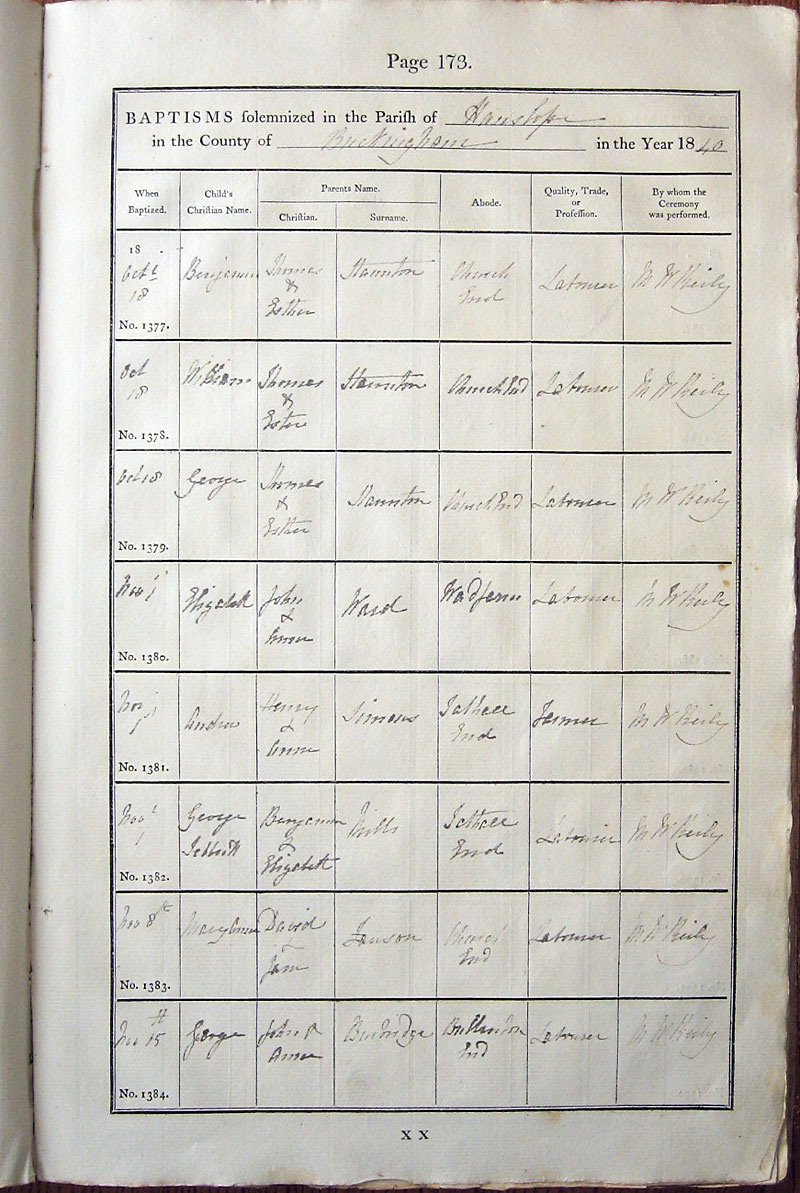 Page 173.
BAPTISMS solemnized in the Parish of Hanslope
in the County of Buckingham in the Year 1840
When Baptized. Child's Christian Name. Parents Name. Christian. Surname. Abode. Quality, Trade, or Profession. By whom the Ceremony was performed.
18
Octr 18 Benjamin Thomas & Esther Staunton Church End Labourer M W Reily
No. 1377.
Oct 18 William Thomas & Ester Staunton Church End Labourer M W Reily
No. 1378.
Oct 18 George Thomas & Esther Staunton Church End Labourer M W Reily
No. 1379.
Nov 1 Elizabeth John & Ward Labourer M W Reily
No. 1380.
Nov 1 Henry & Simons End Farmer M W Reily
No. 1381.
Nov 1 George Benjamin & Elizabeth Mills End Labourer M W Reily
No. 1382.
Nov 8th Mary Ann David Jane Church End Labourer M W Reily
No. 1383.
Nov 15th George John & Burbridge End Labourer M W Reily
No. 1384.
X X